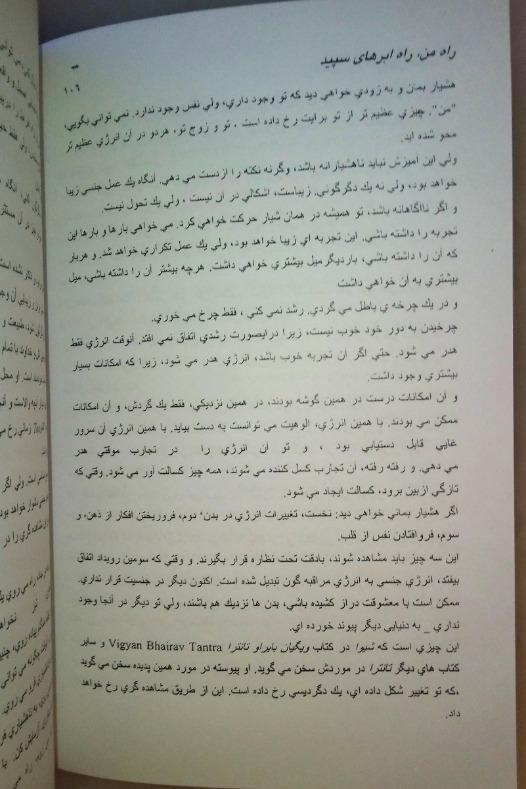 راه من، راه ابرهای سپید
۱۰۶
هشیار بمان و به زودي خواهي ديد كه تو وجود داري، ولي نفس وجود ندارد. نمي تواني بگويي،
"من". چيزي عظيم تر از تو برايت رخ داده است . تو و زوج تو، هردو در آن انرژي عظيم تر
محو شده ايد.
ولي اين آميزش نبايد ناهشيارانه باشد، وگرنه نكته را ازدست مي دهي. آنگاه يك عمل جنسي زيبا
خواهد بود، ولي نه يك دگرگوني. زيباست، اشكالي در آن نيست ، ولي يك تحول نيست.
و اگر ناآگاهانه باشد، تو هميشه در همان شيار حركت خواهي كرد. مي خواهي بارها و بارها اين
تجربه را داشته باشي. اين تجربه اي زيبا خواهد بود، ولي يك عمل تكراري خواهد شد. و هربار
كه آن را داشته باشي، بارديگر ميل بيشتري خواهي داشت. هرچه بيشتر آن را داشته باشي، ميل
بيشتري به آن خواهي داشت
و در يك چرخه ي باطل مي گردي. رشد نمي كني ، فقط چرخ مي خوري.
چرخيدن به دور خود خوب نيست، زيرا دراينصورت رشدي اتفاق نمي افتد. آنوقت انرژي فقط
هدر مي شود. حتي اگر آن تجربه خوب باشد، انرژي هدر مي شود، زيرا كه امكانات بسيار
بيشتري وجود داشت.
و آن امكانات درست در همين گوشه بودند، در همين نزديكي، فقط يك گردش، و آن امكانات
ممكن مي بودند. با همين انرژي، الوهيت مي توانست به دست بيايد. با همين انرژي آن سرور
غايي قابل دستيابي بود ، و تو آن انرژي را در تجارب موقتي هدر
مي دهي. و رفته رفته، آن تجارب كسل كننده مي شوند، همه چيز كسالت آور مي شود. وقتي كه
تازگي ازبين برود، كسالت ايجاد مي شود.
اگر هشيار بماني خواهي ديد: نخست، تغييرات انرژي در بدن، دوم، فروريختن افكار از ذهن، و
سوم، فروافتادن نفس از قلب.
اين سه چيز بايد مشاهده شوند، بادقت تحت نظاره قرار بگيرند. و وقتي كه سومين رويداد اتفاق
بيفتد، انرژي جنسي به انرژي مراقبه گون تبديل شده است. اكنون ديگر در جنسيت قرار نداري.
ممكن است با معشوقت دراز كشيده باشي، بدن ها نزديك هم باشند، ولي تو ديگر در آنجا وجود
نداري _ به دنيايي ديگر پيوند خورده اي.
اين چيزي است كه شيوا در كتاب ويگيان بايراو تانترا Vigyan Bhairav Tantra و ساير
كتاب هاي ديگر تانترا در موردش سخن مي گويد. او پيوسته در مورد همين پديده سخن مي گويد
،كه تو تغيير شكل داده اي، يك دگرديسي رخ داده است. اين از طريق مشاهده گري رخ خواهد
داد.